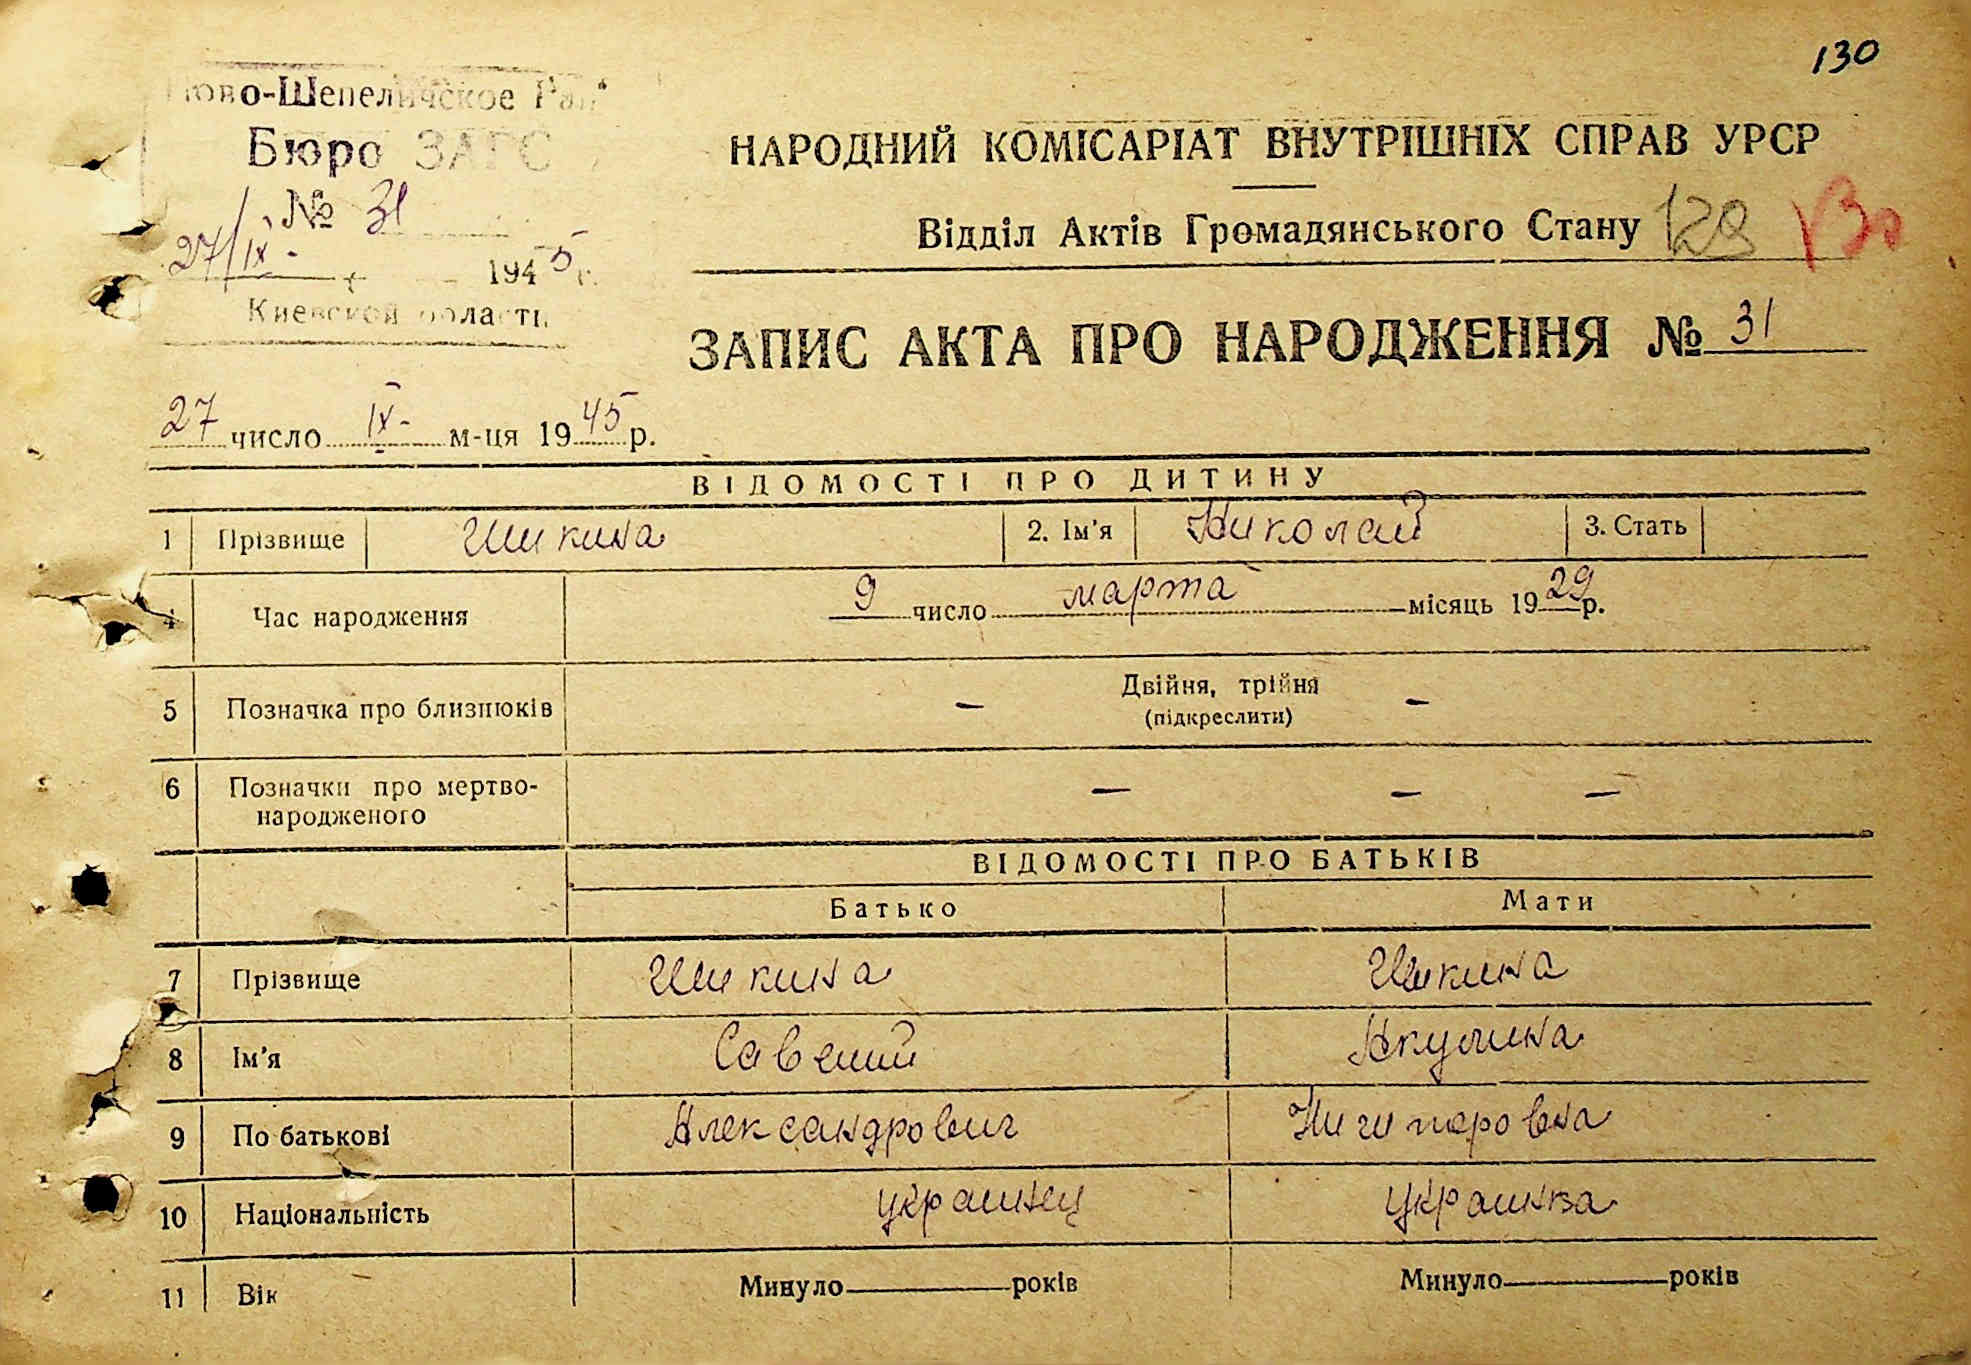 130
Ново-Шепеличское Рай
Бюро ЗАГС
№ 31
27/IX - 1945 г.
Киевской области
НАРОДНИЙ КОМІСАРІАТ ВНУТРІШНІХ СПРАВ УРСР
Відділ Актів Громадянського Стану 129 130
ЗАПИС АКТА ПРО НАРОДЖЕННЯ № 31
27 число IX- м-ця 1945 р.
ВІДОМОСТІ ПРО ДИТИНУ
1 Прізвище Шикина 2. Ім'я Николай 3. Стать
4 Час народження 9 число марта місяць 1929 р.
5 Позначка про близнюків — Двійня, трійня —
(підкреслити)
6 Позначки про мертво- — — —
народженого
ВІДОМОСТІ ПРО БАТЬКІВ
Батько Мати
7 Прізвище Шикина Шикина
8 Ім'я Савелий Акулина
9 По батькові Александрович Ничипоровна
10 Національність украинец украинка
11 Вік Минуло років Минуло років